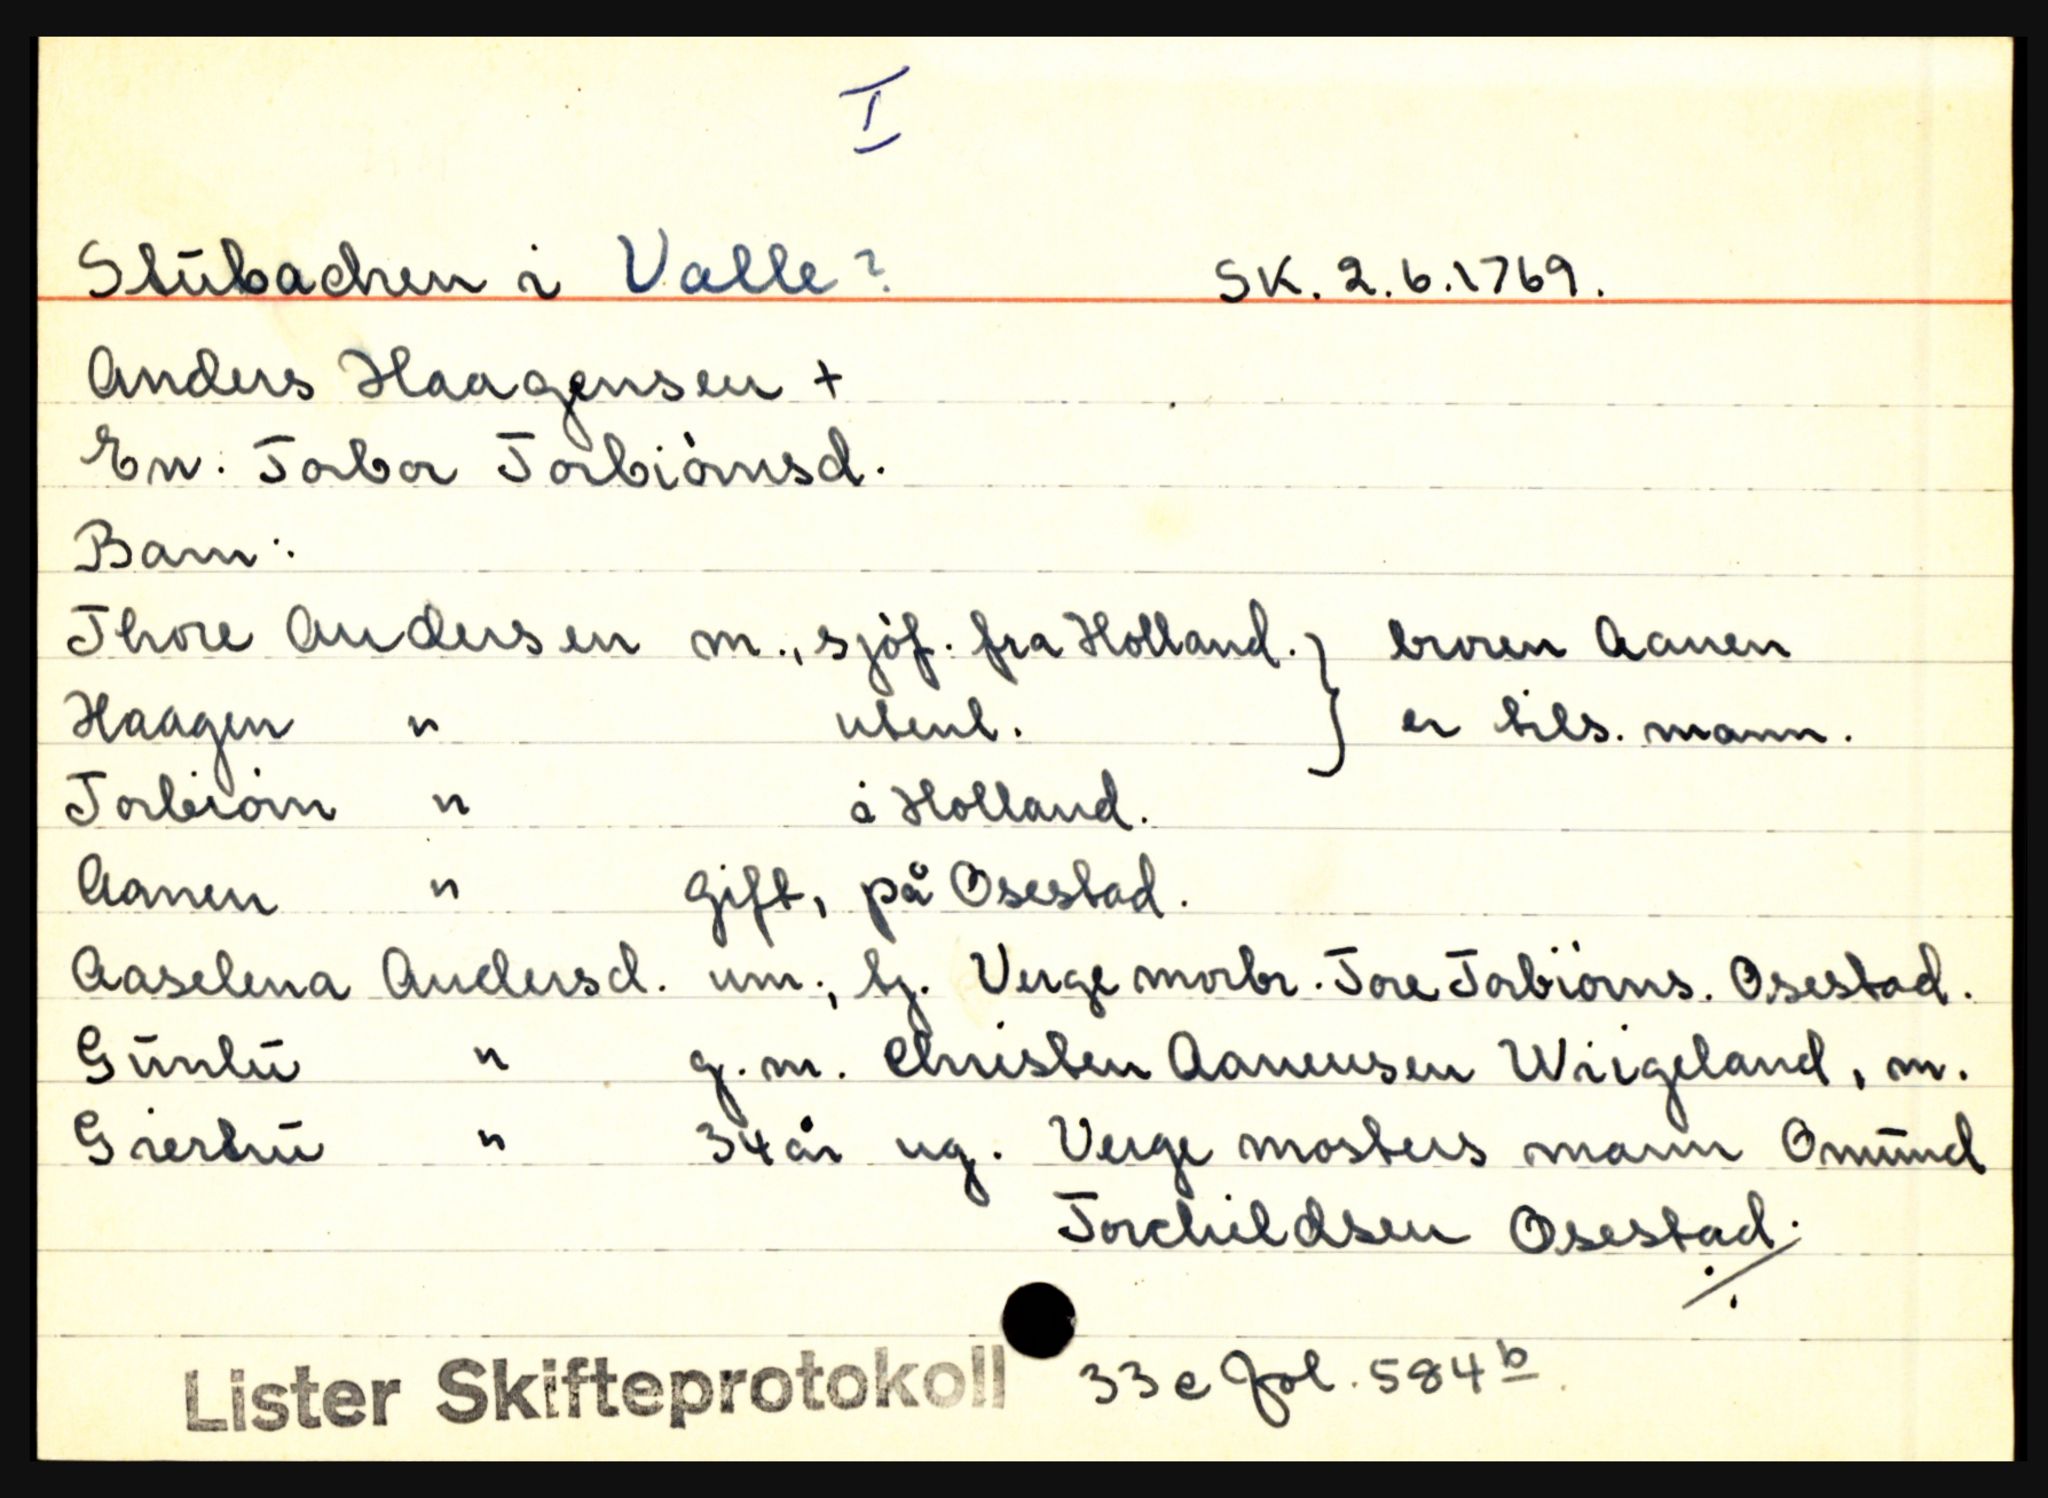 I
Stūbachen i Valle? SK. 2.6.1769.
Anders Haagensen +
En: Torbor Torbiörnsd.
Barn:
Thore Andersen m., sjöf. fra Holland. } broren Aanen
Haagen " utenl. } er tils. mann.
Torbiörn " i Holland.
Aanen " gift, på Osestad.
Aaselena Andersd. um., tj. Verge morbr. Tore Torbiörns. Osestad.
Gūnlū " g. m. Christen Aanensen Wiigeland, m.
Giertrū " 34 år ug. Verge mosters mann Omūnd
Torchildsen Osestad.
Lister Skifteprotokoll 33 c fol. 584 b